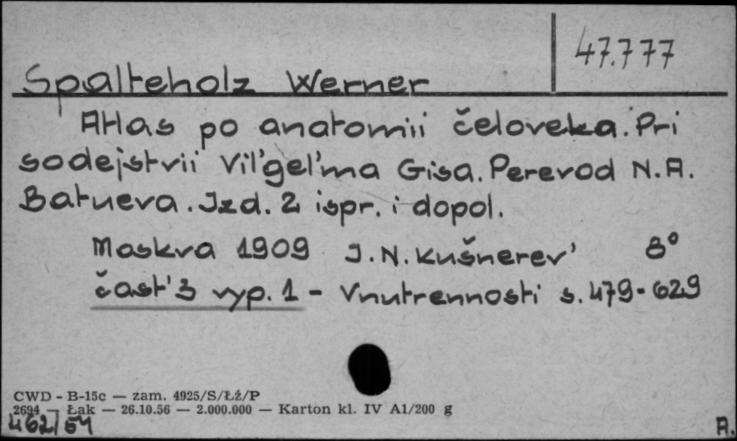 47.777
Spalteholz Werner
Atlas po anatomii čeloveka. Pri
sodejstvii Vil'gel'ma Gisa. Perevod N.A.
Batueva. Izd. 2 ispr. i dopol.
Moskva 1909 I.N. Kušnerev' 8°
čast' 3 vyp. 1 - Vnutrennosti s. 479-629
CWD - B-15c — zam. 4925/S/Łź/P
2694 — Łak — 26.10.56 — 2.000.000 — Karton kl. IV A1/200 g
462/54
A.